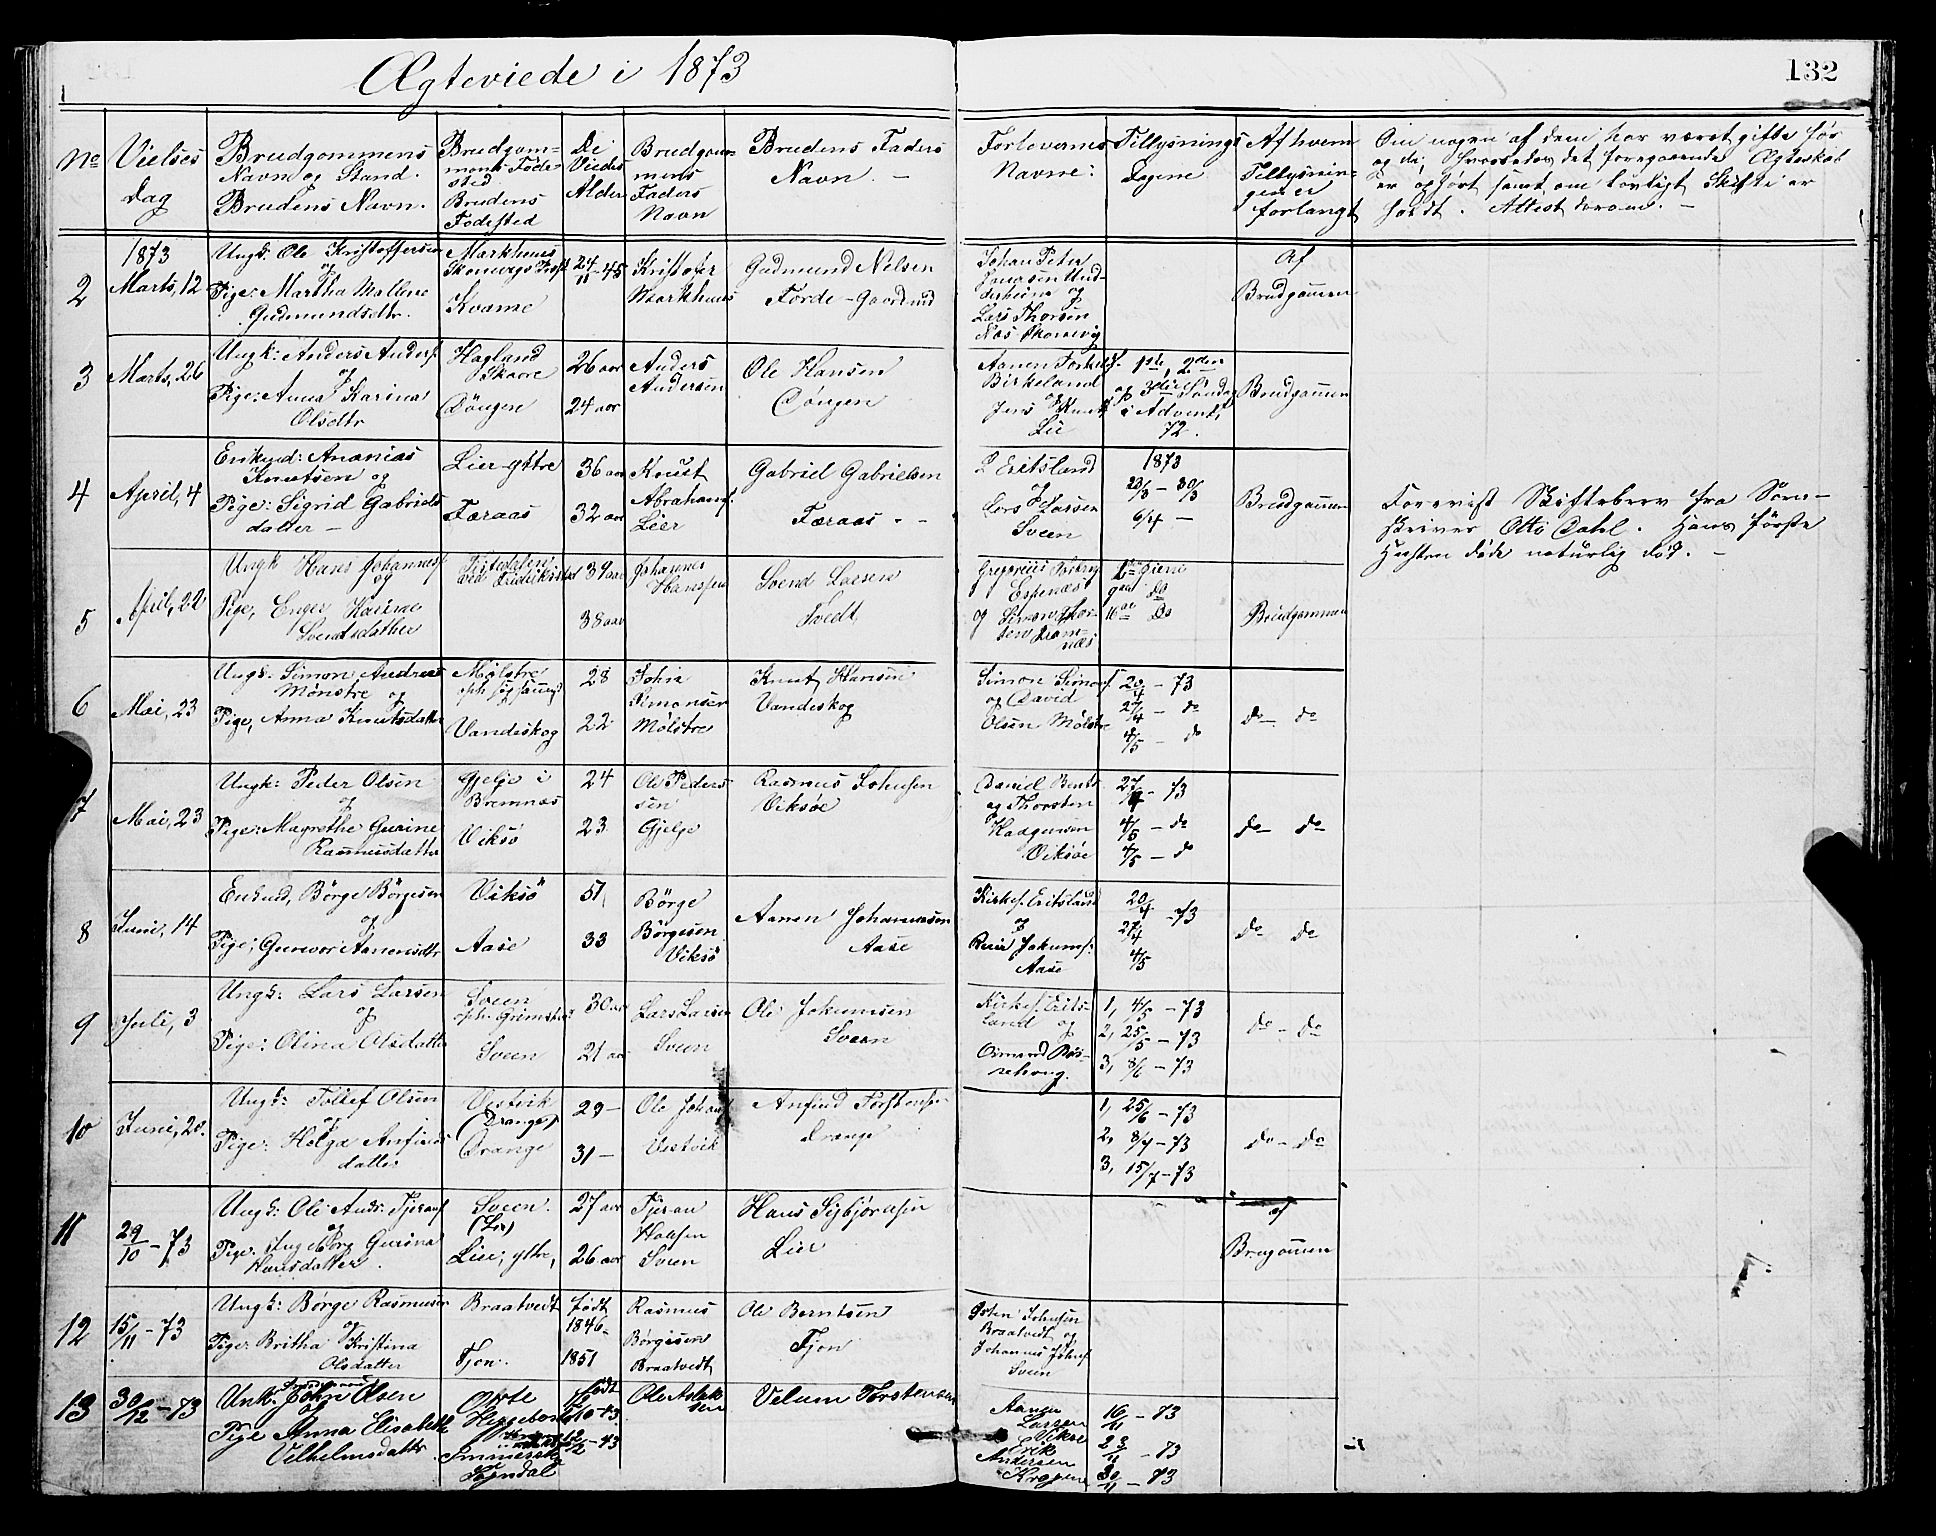 Ægteviede i 1873
132
No
Vielses
dag
Brudgommens
Navn og Stand.
Brudens Navn.
Brudgom-
mens Føde
sted
Brudens
Fødested
De
Viedes
Alder
Brudgom-
mens
Faders
Navn
Brudens Faders
Navn. —
Forlovernes
Navne:
Tillysnings
Dagene
Af hvem
Tillysnin-
gen er
forlangt
Om nogen af dem har været gifte før
og da; hvorledes det foregaaende Ægteskab
er ophørt samt om lovligt Skifte er
holdt. Attest derom. —
2
1873
Marts, 12
Ungk: Ole Kristoffersen
og
Pige: Martha Mallene
Gudmundsdtr.
Markhuus
Skonevigs Præst
Kvame
24/11-45
Kristofer
Markhuus
Gudmund Nelsen
Førde - Gaardmd
Johan Peter
og
Lars Thorsen
Næs Skonevig
Af
Brudgomen
3
Marts, 26
Ungk: Anders Anders.
og
Pige: Anna Karina
Olsdtr
Hagland
Skaare
Döngen
26 aar
24 aar
Anders
Andersen
Ole Hansen
Döngen
Aanen Torkilds.
Birkeland
og
Jens Knuts
Lie
1ste, 2den
og 3die Søndag
i Advent
72.
Brudgomen
4
April, 4
Enkemd: Ananias
Knutsen og
Pige: Sigrid Gabriels
datter —
Lier-yttre
Færaas
36 aar
32 aar
Knut
Abrahams.
Lier
Gabriel Gabrielsen
Færaas. -
L Eritsland
og
Lars Larsen
Sveen
1873
23/3 - 30/3
6/4 —
Brudgomen
Forevist Skiftebrev fra Soren-
skriver Otto Dahl. Hans første
Husten døde naturlig død. —
5
April, 22
Ungk Hans Johannes.
og
Pige, Enger Karine
Svendsdatter
ved Frederiksstad
39 aar
38 aar
Johannes
Hanssen
Svend Larsen
Tvedt
Espenæs
og Simon Thor-
sen
1ste
do
16de do
Brudgommen
6
Mai, 23
Ungk: Simon Andreas
Mønstre og
Pige, Anna Knutsdatter
Mölstre
Vandeskog
28
22
John
Simonsen
Mölstre
Knut Hansen
Vandeskog
Simon Simons.
og David
Olsen Mölstre
20/4 - 73
27/4 - do
4/5 - do
do — do
7
Mai, 23
Ungk: Peder Olsen
og
Pige: Magrethe Gurine
Rasmusdatter
Gjelje i
Bremnæs
Viksö
24
23
Ole Peders
sen
Gjelje
Rasmus Johnsen
Viksøe
Daniel Bents
og Thorsten
Haagensen
Viksøe
27/4 - 73
4/5 - do
4/5 - do
do — do
8
Juni, 14
Enkemd, Börge Börgesen
og
Pige; Gunvor Aanensdtr
Viksö
Aase
51
33
Börge
Börgesen
Viksö
Aanen Johannesen
Aase
Kirkes. Eritsland
og
Reier Jokums:
Aase
20/4 -73
27/4
4/5
do do
9
Juli, 3
Ungk: Lars Larsen
og
Pige: Olina Olsdatter
Sveen
oph. Grimstad
Sveen
30 aar
21 aar
Lars Larsen
Sveen
Ole Jokumsen
Sveen
Kirkes. Erits-
land og
Osmund
1, 4/5 - 73
2, 25/5 - 73
3, 8/6 - 73
do - do
10
Juni, 20.
Ungk: Tollef Olsen
og
Pige: Helga Anfinds
datter
Vestvik
(Drange)
Drange
29 —
31 —
Ole Johans
Vestvik
Anfind Torstensen
Drange
1, 25/6 - 73
2, 8/7 - 73
3, 15/7 - 73
do - do
11
29/10 - 73
Ungk: Ole Andr. Tjerans
og
Pige: Ingeborg Gurina
Hansdatter.
Sveen.
(Lie)
Lier; ytre,
27 aar
26 aar
Tjeran
Sveen
Hans Sigbjørnsen
Lier
af
Brugomen
12
15/11 - 73
Ungk: Børge Rasmusen
og
Pige: Britha Kristina
Olsdatter
Braatvedt
Tjon.
Født
1846-
1851
Rasmus
Börgesen
Braatvedt
Ole Berntsen
Tjon
Østen Johnsen
Braatvedt og
Johannes Johns.
Sveen
13
30/12 - 73
Unk. John Olsen
og
Pige Anna Elisabeth
Vilhelmsdattr
Sogndal
Født
12/2 - 43
Ole Aslak
sen
Velum Torstensen
Aanen
Larsen
Vikse
Erik
Andersen
16/11 - 73
23/11 - 73
30/11 - 73